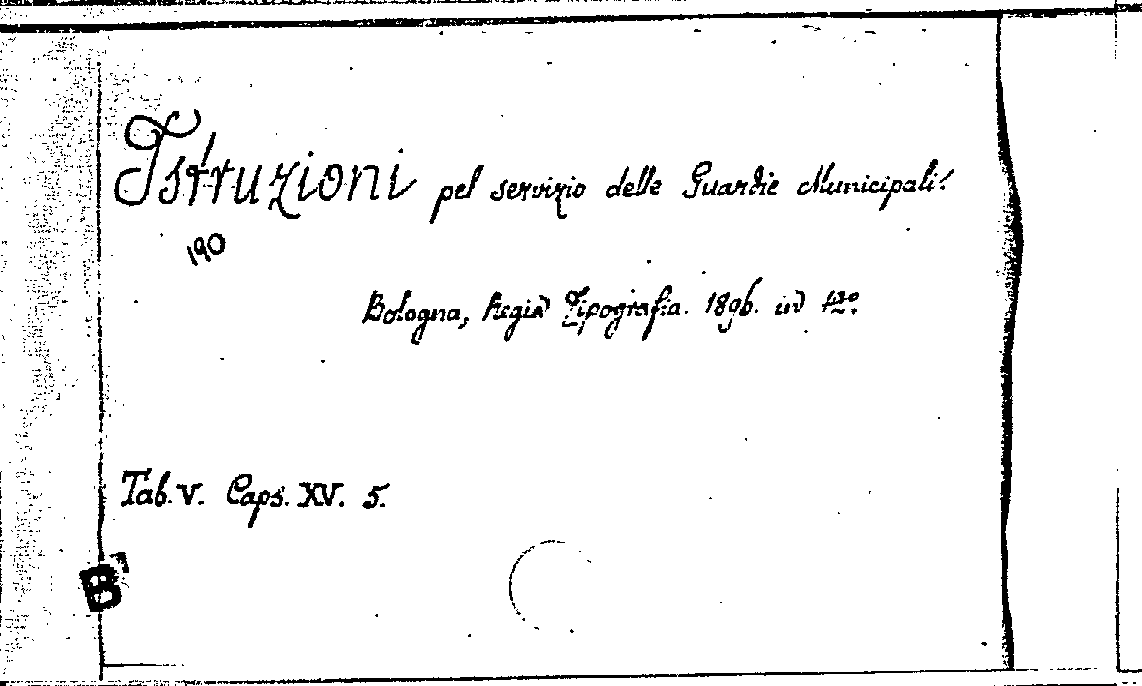 Istruzioni pel servizio delle Guardie Municipali.
190
Bologna, Regia Tipografia. 1896. in 12º
Tab. V. Caps. XV. 5.
B